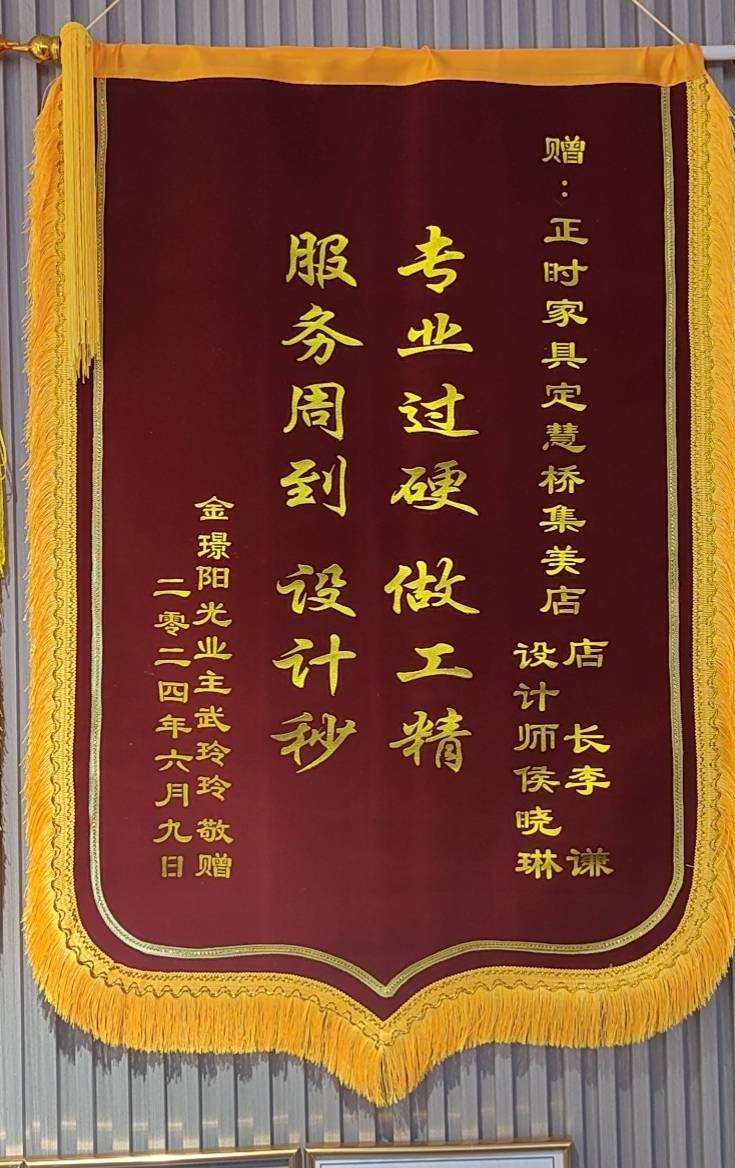 赠：正时家具定慧桥集美店
店长李谦
设计师侯晓琳
专业过硬 做工精
服务周到 设计秒
金璟阳光业主武玲玲 敬赠
二零二四年六月九日